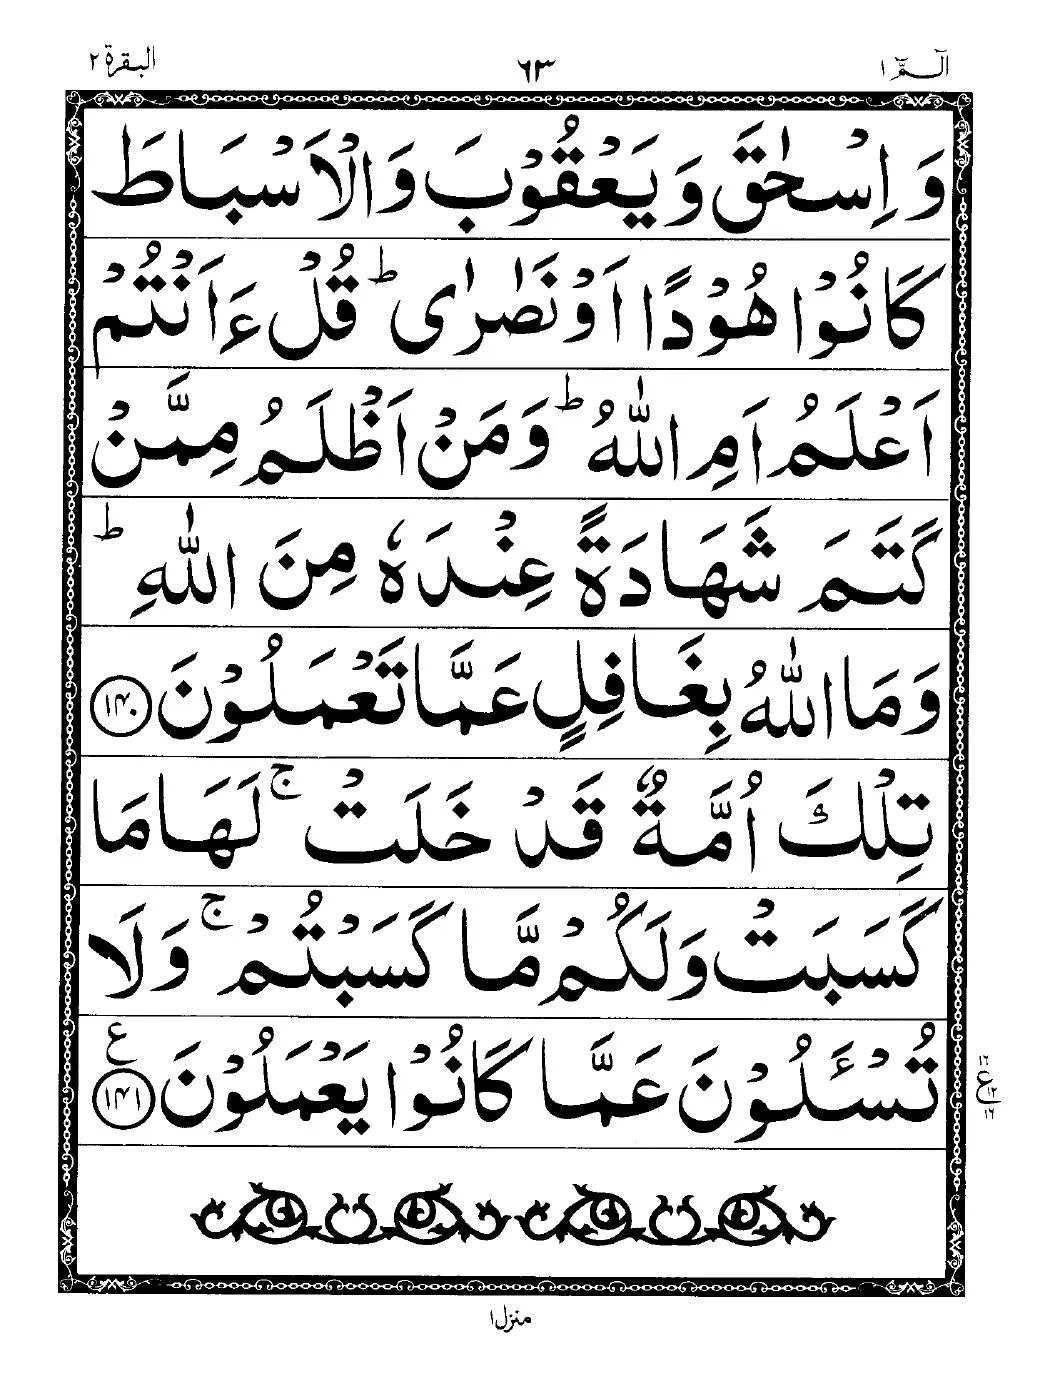 الٓمّٓ ١ ٦٣ البقرة ٢
وَ اِسْحٰقَ وَ یَعْقُوْبَ وَ الْاَسْبَاطَ
كَانُوْا هُوْدًا اَوْ نَصٰرٰی ؕ قُلْ ءَاَنْتُمْ
اَعْلَمُ اَمِ اللّٰهُ ؕ وَ مَنْ اَظْلَمُ مِمَّنْ
كَتَمَ شَهَادَةً عِنْدَهٗ مِنَ اللّٰهِ ؕ
وَ مَا اللّٰهُ بِغَافِلٍ عَمَّا تَعْمَلُوْنَ ١٤٠
تِلْكَ اُمَّةٌ قَدْ خَلَتْ ۚ لَهَا مَا
كَسَبَتْ وَ لَكُمْ مَّا كَسَبْتُمْ ۚ وَ لَا
تُسْـَٔلُوْنَ عَمَّا كَانُوْا یَعْمَلُوْنَ ١٤١ ع
١٦
ع ١٢
١٦
منزل ١